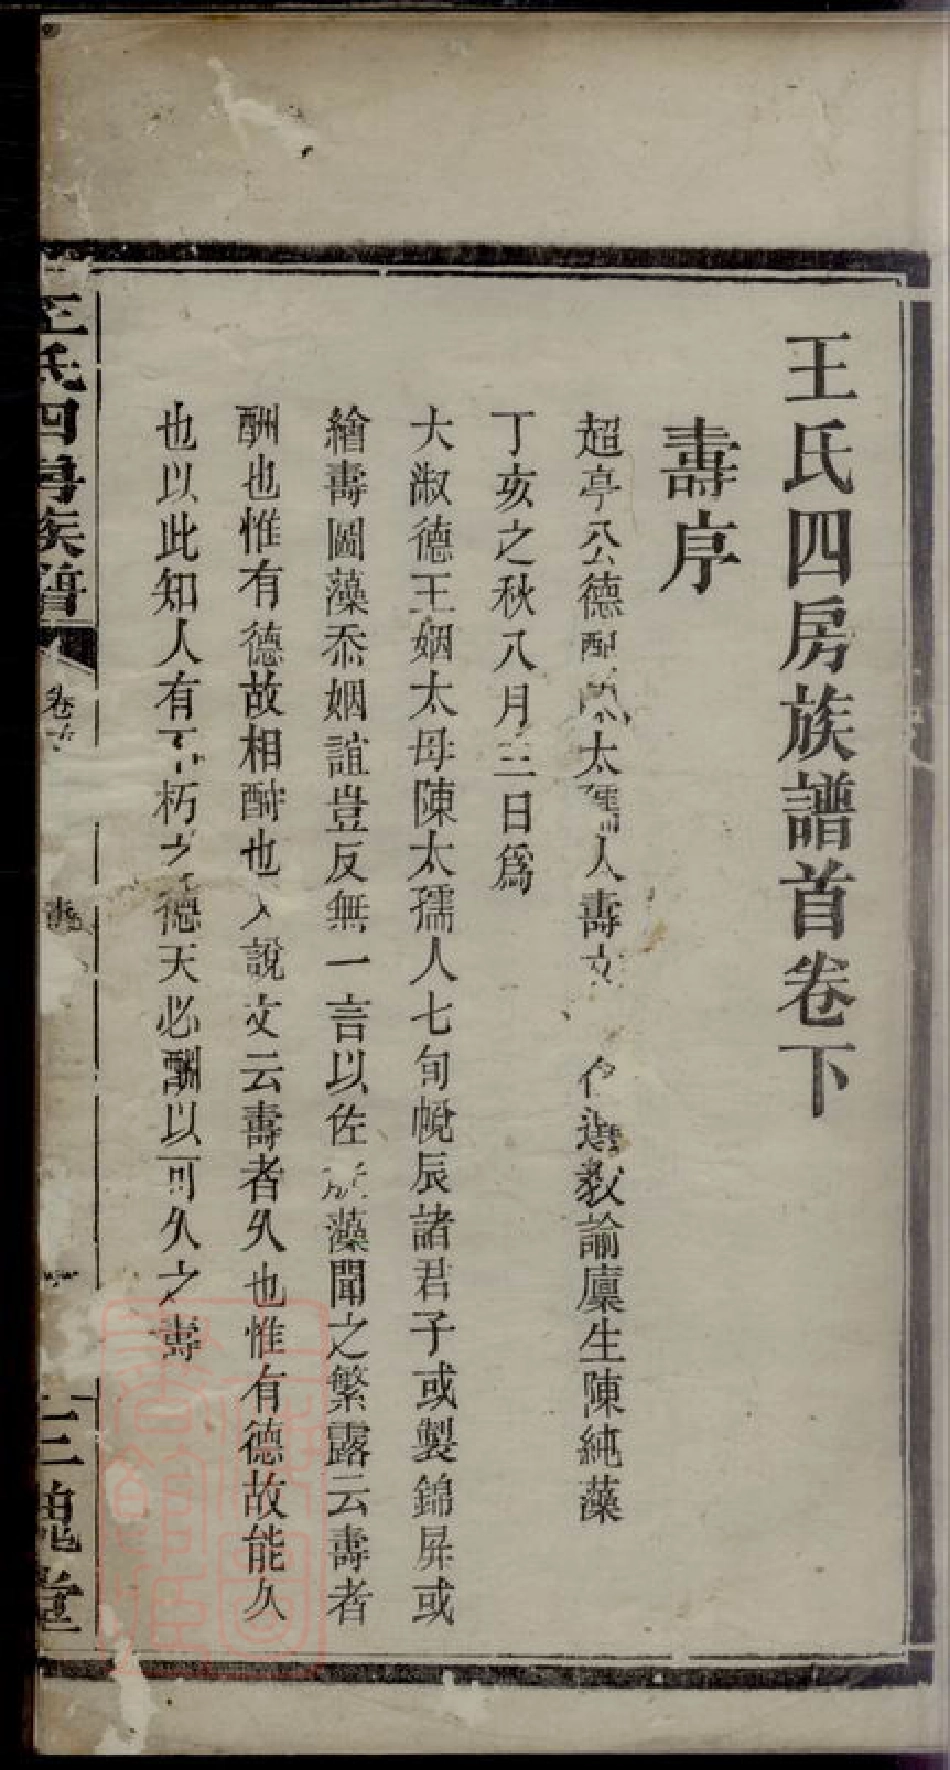 王氏四房族譜首卷下
壽序
超亭公德配陳太孺人壽文 選教諭廩生陳純藻
丁亥之秋八月三日爲
大淑德王姻太母陳太孺人七旬帨辰諸君子或製錦屏或
繪壽圖藻忝姻誼豈反無一言以佐 藻聞之繁露云壽者
酬也惟有德故相酬也又說文云壽者久也惟有德故能久
也以此知人有不朽之德天必酬以可久之壽
王氏四房族譜
卷
壽
三槐堂